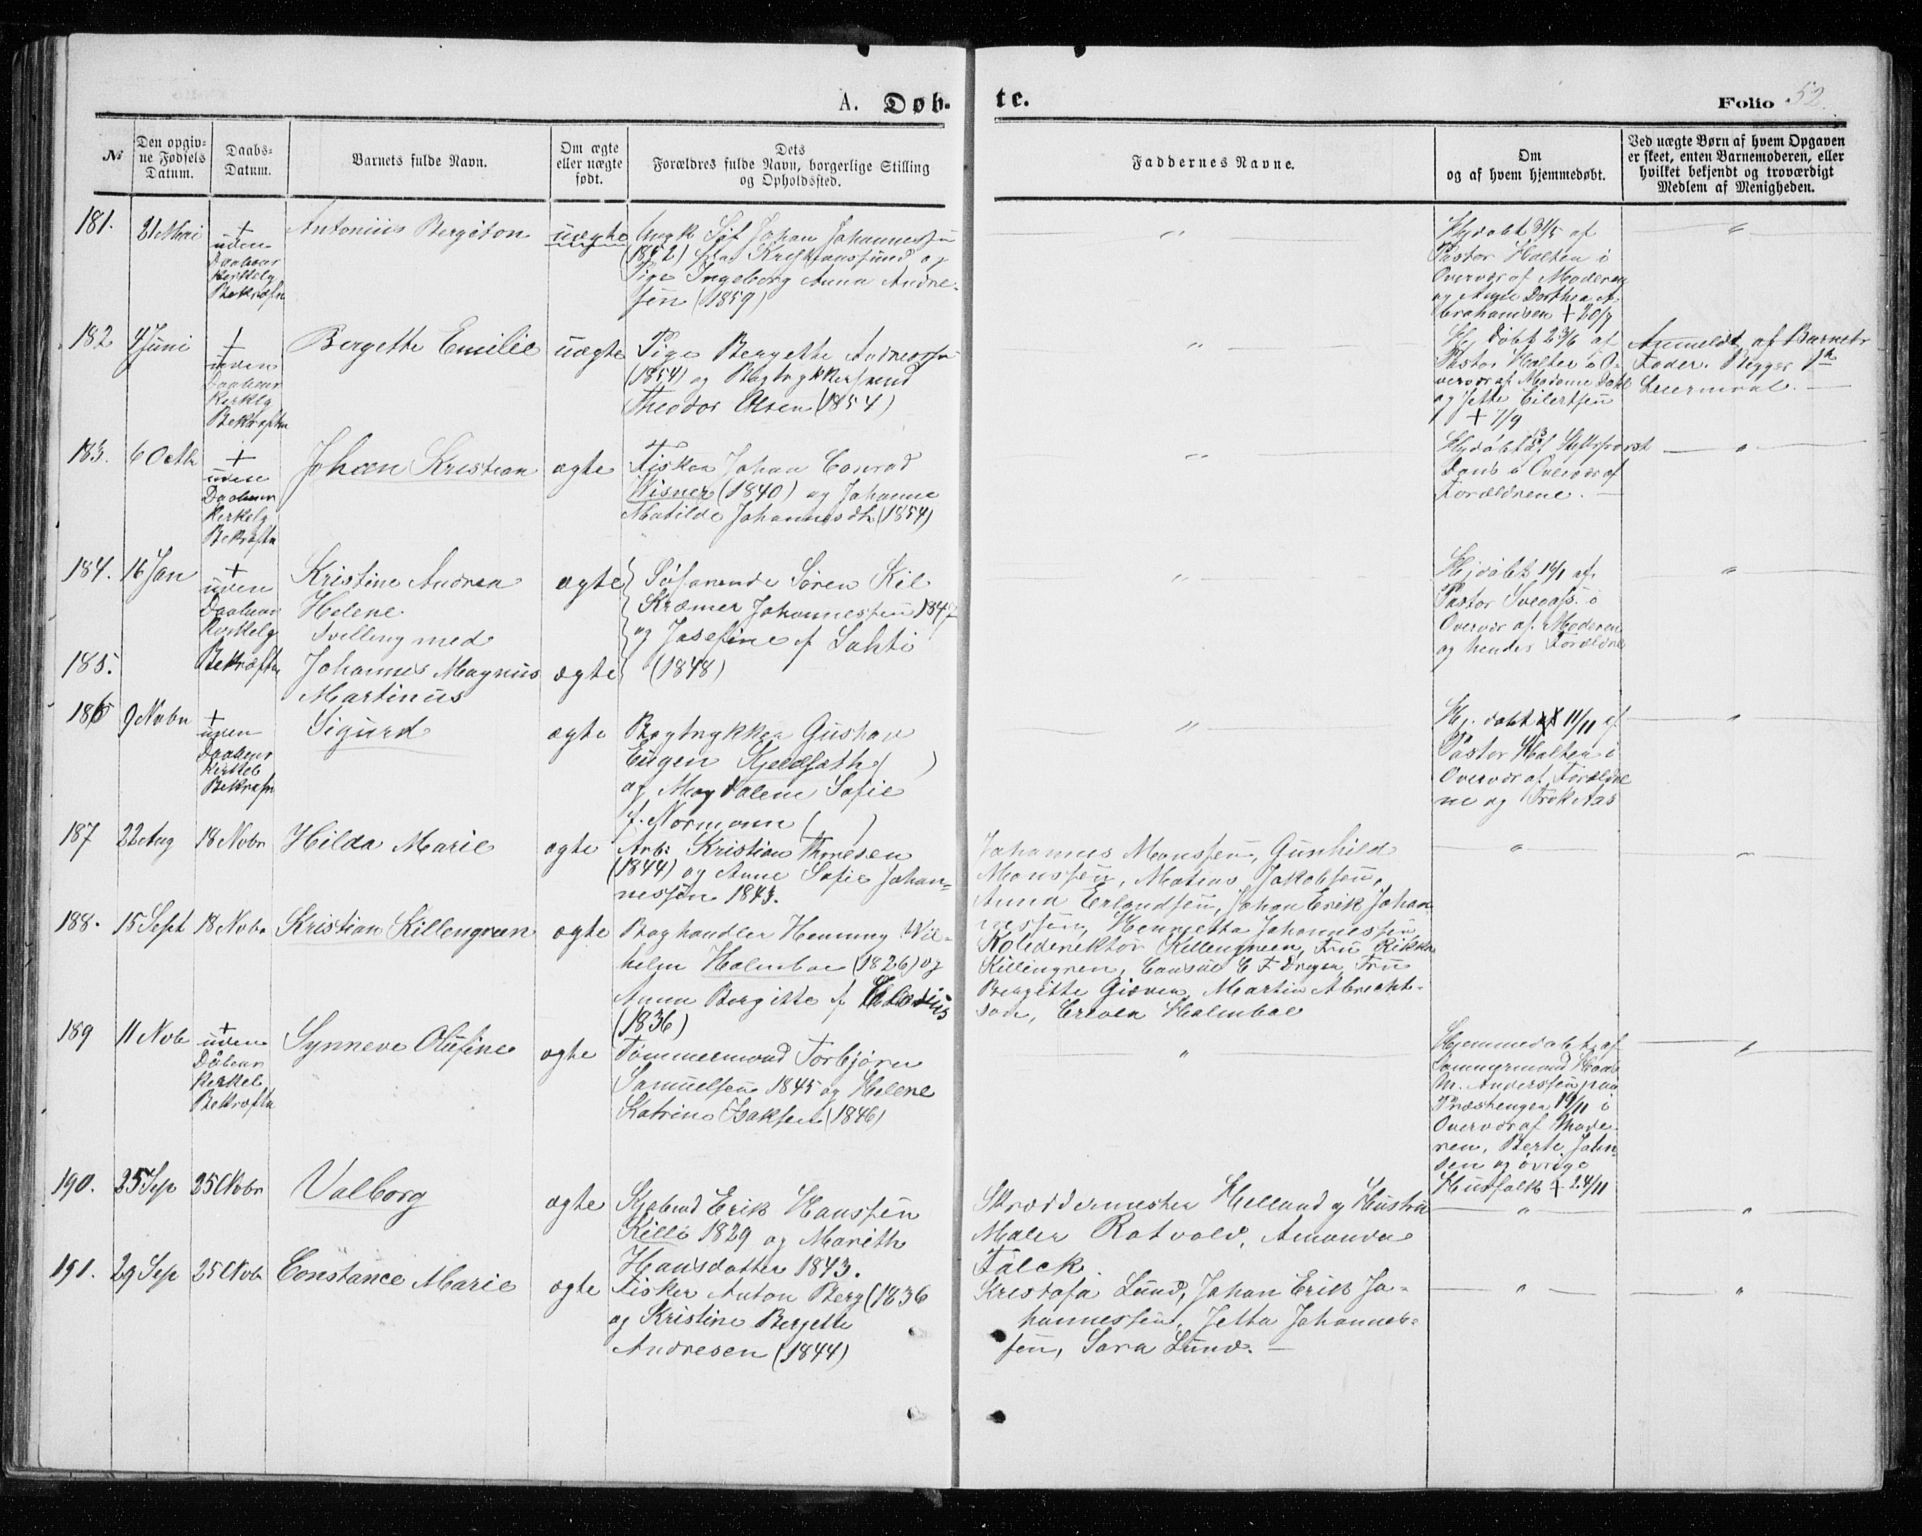 A. Døb- te. Folio 52.
№
Den opgiv-
ne Fødsels
Datum.
Daabs-
Datum.
Barnets fulde Navn.
Om ægte
eller uægte
født.
Dets
Forældres fulde Navn, borgerlige Stilling
og Opholdssted.
Faddernes Navne.
Om
og af hvem hjemmedøbt.
Ved uægte Børn af hvem Opgaven
er skeet, enten Barnemoderen, eller
hvilket bekjendt og troværdigt
Medlem af Menigheden.
181. 21 Mai
+
uden
Daabens
Kirkelg
Bekræftn
Antonius Bergiton
uægte
Ungk Søf Johan Johannessen
(1852) fra Kristiansund og
Pige Ingeborg Anna Andre-
sen (1859)
"
Hjdøbt 21/5 af
Pastor Holten i
Overvær af Moderen
og Dorthea A-
brahamsen + 20/7
"
182 4 Juni
+
uden
Daabens
Kirkelg
Bekræftn
Bergette Emilie
uægte
Pige Bergette Andressn
(1854) og Bogtrykkersvend
Theodor Olsen (1854)
"
Hj. døbt 23/6 af
Pastor Holten i O-
vervær af Madame Dahl
og Jette Eilertsen
+ 7/9
Anmeldt af Barnets
Fader. Begges 1ste
Leiermaal. —
183. 6 Octbr
+
uden
Daabens
Kirkelg
Bekræftn
Johan Kristian
ægte
Fisker Johan Conrad
Wisner (1840) og Johanne
Matilde Johannesdtr (1854)
"
Hjdøbt 13/ Stiftsprovst
Dans i Overvær af
Forældrene. —
"
184. 16 Jan
+
uden
Daabens
Kirkelg
Bekræftn
Kristine Andrea
Helene
Tvilling med
ægte
Søfarende Søren Kil
Kræmer Johannessen 1847
og Josefine f Lahti
(1848)
"
Hjdøbt 19/1 af
Pastor i
Overvær af Moderen
og hendes Forældre
"
185. Johannes Magnus
Martinus
ægte
186 9 Novbr
+
uden
Daabens
Kirkel
Bekræftn
Sigurd
ægte
Bogtrykker Gustav
Eugen Kjeldseth ( )
og Magdalene Sofie
f. Normann ( )
"
Hj. døbt 11/11 af
Pastor Holten i
Overvær af Forældre
ne og
"
187 22 Aug 18 Novbr Hilda Marie
ægte
Arb: Kristian Thoresen
(1844) og Anne Sofie Johan-
nessen 1843.
Johannes Monssen, Gunhild
Monssen, Matias Jakobsen,
Anna Erlandsen, Johan Erik Johan-
nessen, Henrietta Johannessen
"
"
188. 15 Sept 18 Novbr Kristian Killengreen
ægte
Boghandler Henning Wil-
helm Holmboe (1826) og
Anna Bergitte f
(1836)
Killengreen, Fru Rikka
Killengren, Consul C F Dreyer, Fru
Bergitte Giæver, Martin Albrecht-
sen, Holmboe
189 11 Novb
+
uden
Dåbens
Kirkel
Bekræftn
Synneve Olufine
ægte
Tømmermand Torbjørn
Samuelsen 1845 og Helene
Katrine Isaksen (1846)
"
Hjemmedøbt af
Tømmermand Hans
M. Anderssen paa
Præstengen 19/11 i
Overvær af Mode-
ren, Berte John-
sen og øvrige
Husfolk + 24/11
"
190. 25 Sep 25 Novbr Valborg
ægte
Erik Hanssen
Killi 1829 og Marith
Hansdatter 1843.
Skræddermester Helland og Hustru
Maler Rotvold, Amanda
Falck.
"
"
191. 29 Sep 25 Novb Constance Marie
ægte
Fisker Anton Berg (1836
og Kristine Bergette
Andresen (1844)
Kristofa Lund, Johan Erik Jo-
hannessen, Jetta Johannes-
sen, Sara Lund. —
"
"